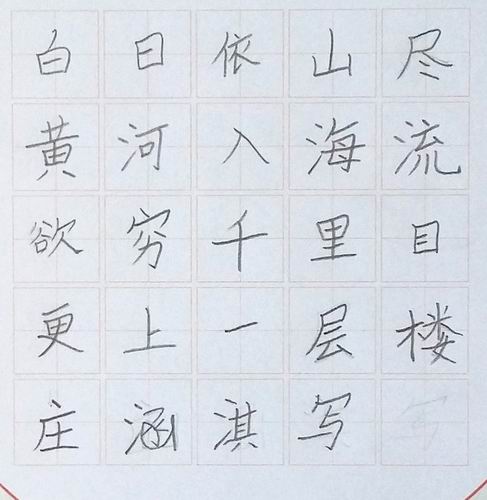 白日依山尽
黄河入海流
欲穷千里目
更上一层楼
庄涵淇写